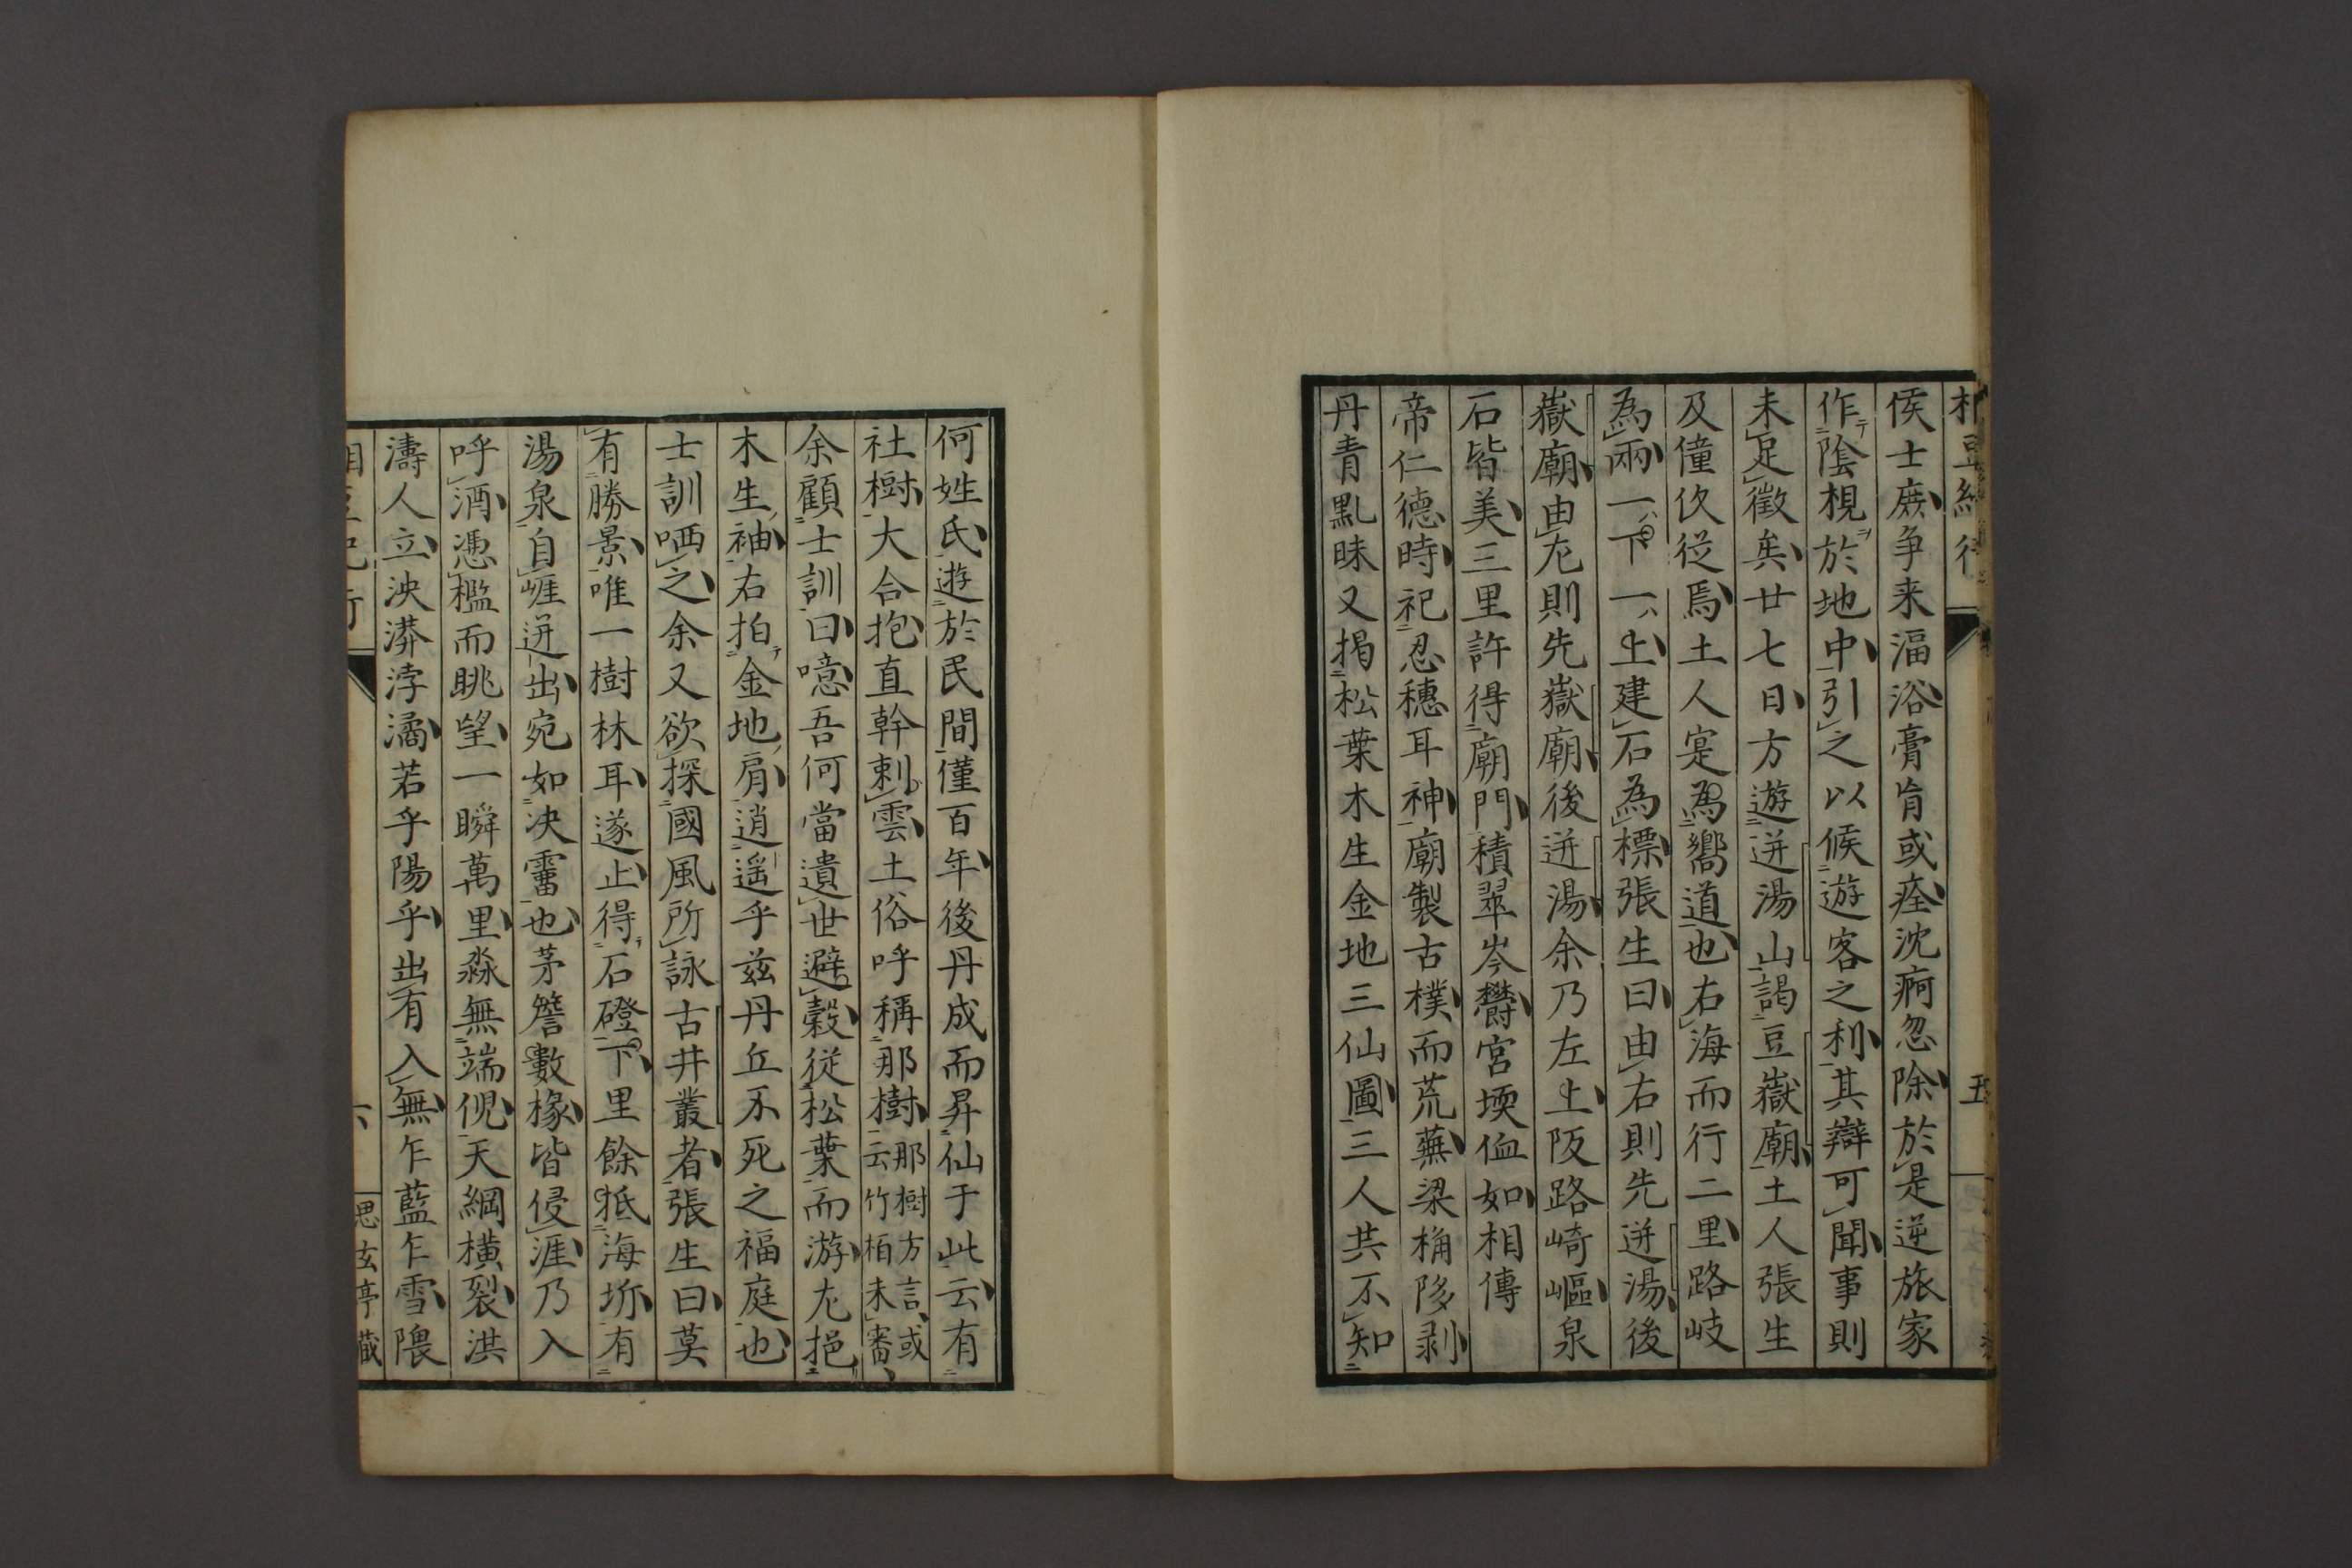 侯士庶争来湢浴膏肓或痊沈痾忽除於是逆旅家
作陰梘於地中引之以候遊客之利其辯可聞事則
未足徵矣廿七日方遊迸湯山謁豆嶽廟土人張生
及僮伙從焉土人寔為嚮道也右海而行二里路岐
為兩一下一上建石為標張生曰由右則先迸湯後
嶽廟由左則先嶽廟後迸湯余乃左上阪路崎嶇泉
石皆美三里許得廟門積翠岑欝宮堧侐如相傳
帝仁德時祀忍穗耳神廟製古樸而荒蕪梁桷陊剥
丹青黮昧又揭松葉木生金地三仙圖三人共不知
何姓氏遊於民間僅百年後丹成而昇仙于此云有
社樹大合抱直幹刺雲土俗呼稱那樹
那樹方言或
云竹柏未審
余顧士訓曰噫吾何當遺世避穀從松葉而游左挹
木生袖右拍金地肩逍遥乎茲丹丘不死之福庭也
士訓哂之余又欲探國風所詠古井叢者張生曰莫
有勝景唯一樹林耳遂止得石磴下里餘抵海圻有
湯泉自崕迸出宛如决霤也茅簷數椽皆侵涯乃入
呼酒憑檻而眺望一瞬萬里淼無端倪天綱橫裂洪
濤人立泱漭渟潏若乎陽乎出有入無乍藍乍雪隈
思玄亭藏